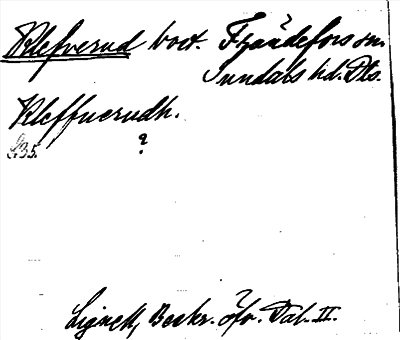 Klefverud bort. Frändefors sn.
Sundals hd. Dls.
Kleffuerudh.
35. ?
Lignell, Beskr. öfv. Dal. II.